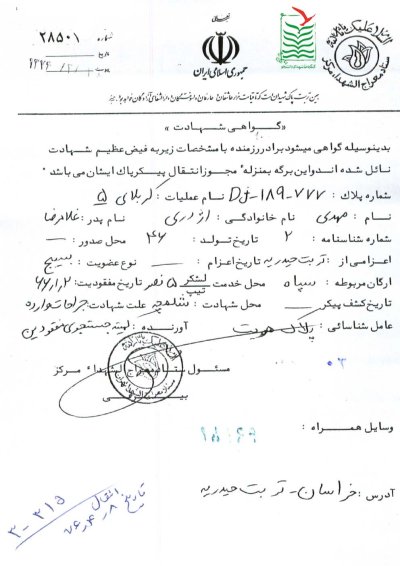 بسمه تعالی
شماره ۲۸۵۰۱
تاریخ
جمهوری اسلامی ایران
السلام علیک یا ثارالله
ستاد معراج الشهداء مرکز
«گواهی شهادت»
بدینوسیله گواهی میشود برادر رزمنده با مشخصات زیر به فیض عظیم شهادت
نائل شده اند و این برگه بمنزله مجوز انتقال پیکر پاک ایشان می باشد.
شماره پلاک: DJ-۱۸۹-۷۷۷ نام عملیات: کربلای ۵
نام: مهدی نام خانوادگی: اژدری نام پدر: غلامرضا
شماره شناسنامه: ۲ تاریخ تولد: ۴۶ محل صدور: —
اعزامی از: تربت حیدریه تاریخ اعزام: — نوع عضویت: بسیج
ارگان مربوطه: سپاه محل خدمت لشکر تیپ ۵ نصر تاریخ مفقودیت: ۶۶/۱/۲
تاریخ کشف پیکر — محل شهادت: شلمچه علت شهادت: جراحات وارده
عامل شناسائی: پلاک هویت آورنده: کمیته جستجوی مفقودین
مسئول ستاد معراج الشهداء مرکز
وسایل همراه:
آدرس: خراسان - تربت حیدریه
انتقال
تاریخ ۷۶/۴/۸
۳-۳۱۵